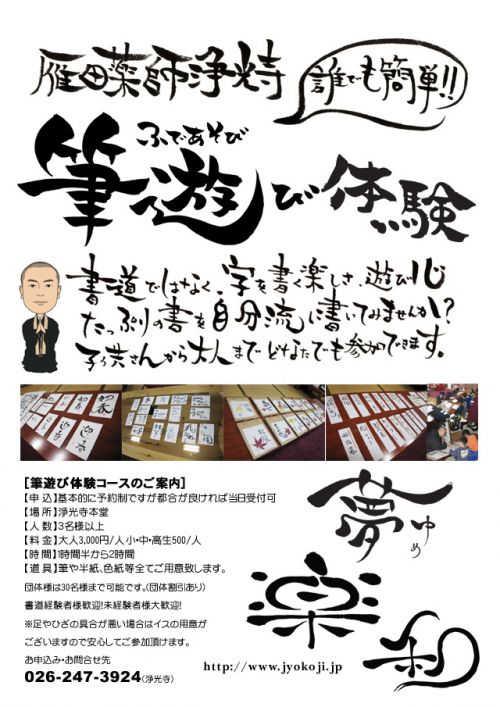 雁田薬師浄光寺
誰でも簡単!!
ふであそび
筆遊び体験
書道ではなく、字を書く楽しさ、遊び心
たっぷりの書を自分流に書いてみませんか?
子供さんから大人までどなたでも参加できます。
[筆遊び体験コースのご案内]
【申 込】基本的に予約制ですが都合が良ければ当日受付可
【場 所】浄光寺本堂
【人 数】3名様以上
【料 金】大人3,000円/人 小・中・高生500/人
【時 間】1時間半から2時間
【道 具】筆や半紙、色紙等全てご用意致します。
団体様は30名様まで可能です。(団体割引あり)
書道経験者様歓迎!未経験者様大歓迎!
※足やひざの具合が悪い場合はイスの用意が
ございますので安心してご参加頂けます。
お申込み・お問合せ先
026-247-3924(浄光寺)
夢
ゆめ
楽
和
http://www.jyokoji.jp